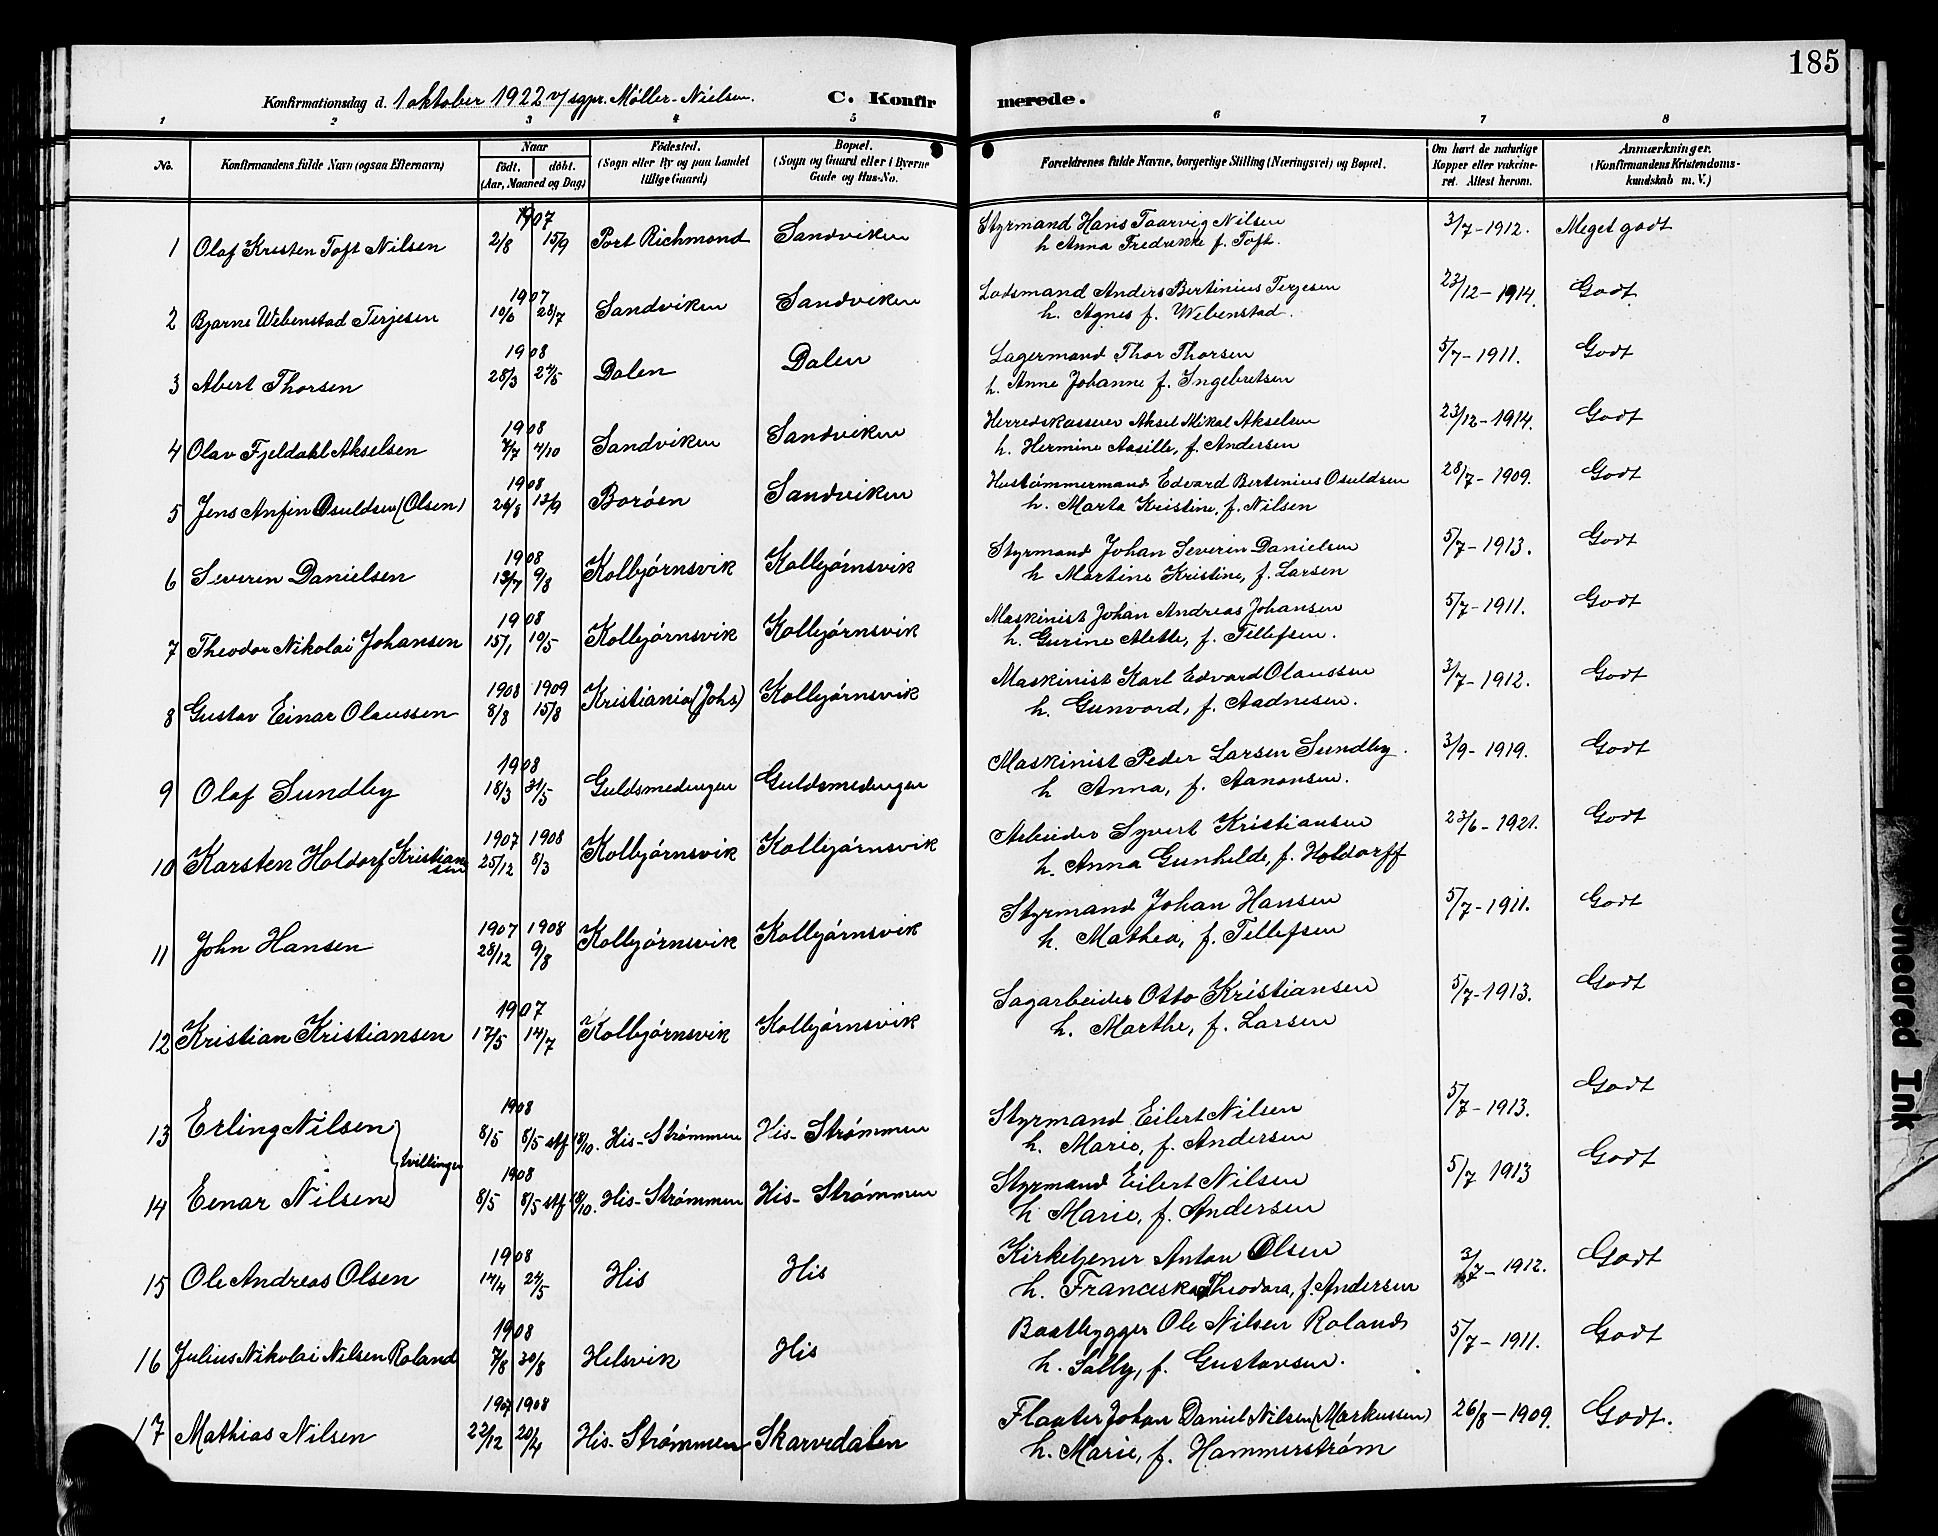 185
Konfirmationsdag d. 1 oktober 1922 v/ sgpr. Møller-Nielsen. C. Konfirmerede.
1 2 3 4 5 6 7 8
No. Konfirmandens fulde Navn (ogsaa Efternavn) Naar født. døbt. (Aar, Maaned og Dag) Fødested. (Sogn eller By og paa Landet tillige Gaard) Bopæl. (Sogn og Gaard eller i Byerne Gade og Hus-No. Forældrenes fulde Navne, borgerlige Stilling (Næringsvei) og Bopæl. Om havt de naturlige Kopper eller vakcineret. Attest herom. Anmærkninger. (Konfirmandens Kristendomskundskab m. V.)
1907
1 Olaf Kristen Toft Nilsen 2/8 15/9 Port Richmond Sandviken Styrmand Hans Taarvig Nilsen 3/7-1912. Meget godt
h. Anna Fredrikke f. Toft.
1907
2 Bjarne Webenstad Terjesen 10/6 28/7 Sandviken Sandviken Lodsmand Anders Bertinius Terjesen 23/12-1914. Godt
h. Agnes f. Webenstad.
1908
3 Abert Thorsen 28/3 24/5 Dalen Dalen Lagermand Thor Thorsen 5/7-1911. Godt
h. Anne Johanne f. Ingebretsen
1908
4 Olav Fjeldahl Akselsen 7/7 4/10 Sandviken Sandviken Herredskasserer Aksel Mikal Akselsen 23/12-1914. Godt
h. Hermine Aasille, f. Andersen
1908
5 Jens Anfin Osuldsen (Olsen) 26/8 13/9 Borøen Sandviken Hustømmermand Edvard Bertenius Osuldsen 28/7-1909. Godt
h. Marta Kristine, f. Nilsen
1908
6 Severin Danielsen 13/7 9/8 Kolbjørnsvik Kolbjørnsvik Styrmand Johan Severin Danielsen 5/7-1913. Godt
h Martine Kristine, f. Larsen
1908
7 Theodor Nikolai Johansen 15/1 10/5 Kolbjørnsvik Kolbjørnsvik Maskinist Johan Andreas Johansen 5/7-1911. Godt
h. Gurine Alette, f. Tellefsen.
1908 1909
8 Gustav Einar Olaussen 8/8 15/8 Kristiania (Johs) Kolbjørnsvik Maskinist Karl Edvard Olaussen 3/7-1912. Godt
h. Gunvord, f. Aadnesen.
1908
9 Olaf Sundby 18/3 31/5 Guldsmedengen Guldsmedengen Maskinist Peder Larsen Sundby. 3/9-1919. Godt
h Anna, f. Aanonsen.
1907 1908
10 Karsten Holdorf Kristiansen 25/12 8/3 Kolbjørnsvik Kolbjørnsvik Arbeider Syvert Kristiansen 23/6-1921. Godt
h. Anna Gunhilde, f. Holdorff
1907 1908
11 John Hansen 28/12 9/8 Kolbjørnsvik Kolbjørnsvik Styrmand Johan Hansen 5/7-1911. Godt
h. Mathea, f. Tellefsen
1907
12 Kristian Kristiansen 17/5 14/7 Kolbjørnsvik Kolbjørnsvik Sagarbeider Otto Kristiansen 5/7-1913. Godt
h. Marthe, f. Larsen
1908
13 Erling Nilsen 8/5 8/5 stf 18/10. His-Strømmen His-Strømmen Styrmand Eilert Nilsen 5/7-1913. Godt
h. Marie, f. Andersen
tvillinger
1908
14 Einar Nilsen 8/5 8/5 stf 18/10. His-Strømmen His-Strømmen Styrmand Eilert Nilsen 5/7 1913 Godt
h Marie, f. Andersen
1908
15 Ole Andreas Olsen 14/4 24/5 His His Kirketjener Anton Olsen 3/7-1912. Godt
h. Franciska Theodora, f. Andersen
1908
16 Julius Nikolai Nilsen Roland 7/8 30/8 Helsvik His Baatbygger Ole Nilsen Roland 5/7-1911. Godt
h. Sally, f. Gustavsen.
1907 1908
17 Mathias Nilsen 22/12 20/4 His-Strømmen Skarvedalen Flaater Johan Daniel Nilsen (Markussen) 26/8-1909. Godt.
h. Marie, f. Hammerstrøm
Smeared Ink